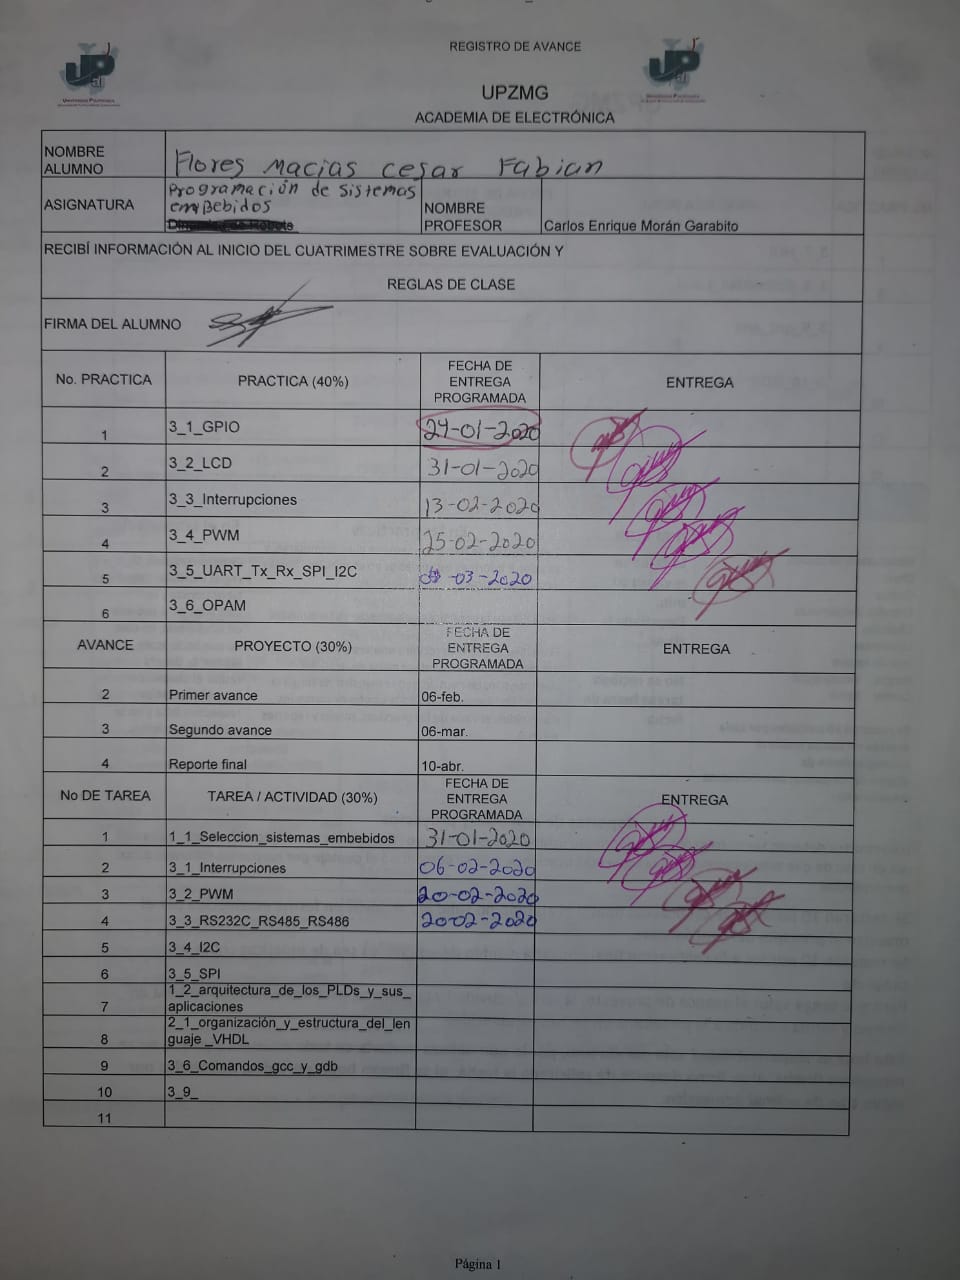 REGISTRO DE AVANCE
UPZMG
ACADEMIA DE ELECTRÓNICA
NOMBRE ALUMNO Flores Macias Cesar Fabian
ASIGNATURA Programación de Sistemas emBebidos NOMBRE PROFESOR Carlos Enrique Morán Garabito
RECIBÍ INFORMACIÓN AL INICIO DEL CUATRIMESTRE SOBRE EVALUACIÓN Y
REGLAS DE CLASE
FIRMA DEL ALUMNO
No. PRACTICA PRACTICA (40%) FECHA DE ENTREGA PROGRAMADA ENTREGA
1 3_1_GPIO 24-01-2020
2 3_2_LCD 31-01-2020
3 3_3_Interrupciones 13-02-2020
4 3_4_PWM 25-02-2020
5 3_5_UART_Tx_Rx_SPI_I2C -03-2020
6 3_6_OPAM
AVANCE PROYECTO (30%) FECHA DE ENTREGA PROGRAMADA ENTREGA
2 Primer avance 06-feb.
3 Segundo avance 06-mar.
4 Reporte final 10-abr.
No DE TAREA TAREA / ACTIVIDAD (30%) FECHA DE ENTREGA PROGRAMADA ENTREGA
1 1_1_Seleccion_sistemas_embebidos 31-01-2020
2 3_1_Interrupciones 06-02-2020
3 3_2_PWM 20-02-2020
4 3_3_RS232C_RS485_RS486 20-02-2020
5 3_4_I2C
6 3_5_SPI
7 1_2_arquitectura_de_los_PLDs_y_sus_ aplicaciones
8 2_1_organización_y_estructura_del_len guaje _VHDL
9 3_6_Comandos_gcc_y_gdb
10 3_9_
11
Página 1